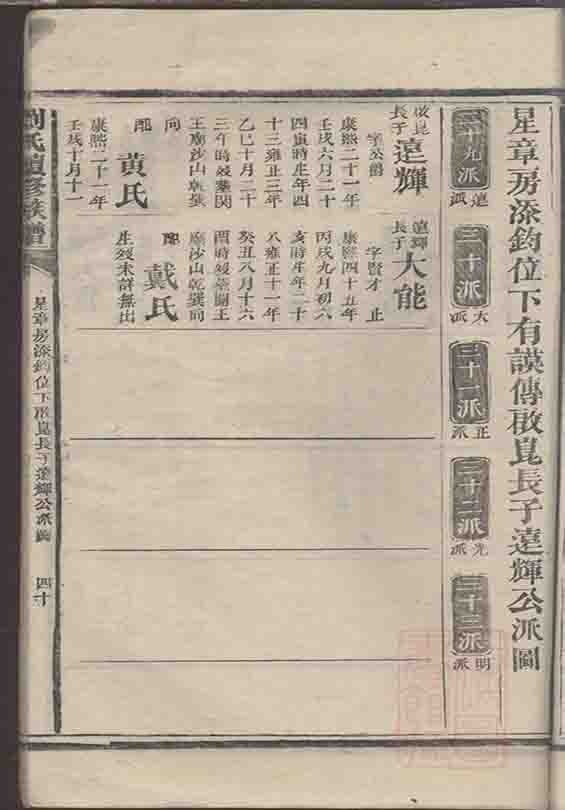 星章房添鈞位下有謨傳啟崑長子遠輝公派圖
二十九派 遠派
三十派 大派
三十一派 正派
三十二派 光派
三十三派 明派
啟崑長子 遠輝
字公爵
康熙二十一年
壬戌六月二十
四寅時生年四
十三雍正三年
乙巳十月二十
三午時歿葬関
王廟沙山乾㢲
向
配 黄氏
康熙二十一年
壬戌十月十一
遠輝長子 大能
字賢才 止
康熙四十五年
丙戌九月初六
亥時生年二十
八雍正十一年
癸丑八月十六
酉時歿葬關王
廟沙山乾㢲向
配 戴氏
生歿未詳無出
劉氏續修族譜
星章房添鈞位下啟崑長子遠輝公派圖
四十